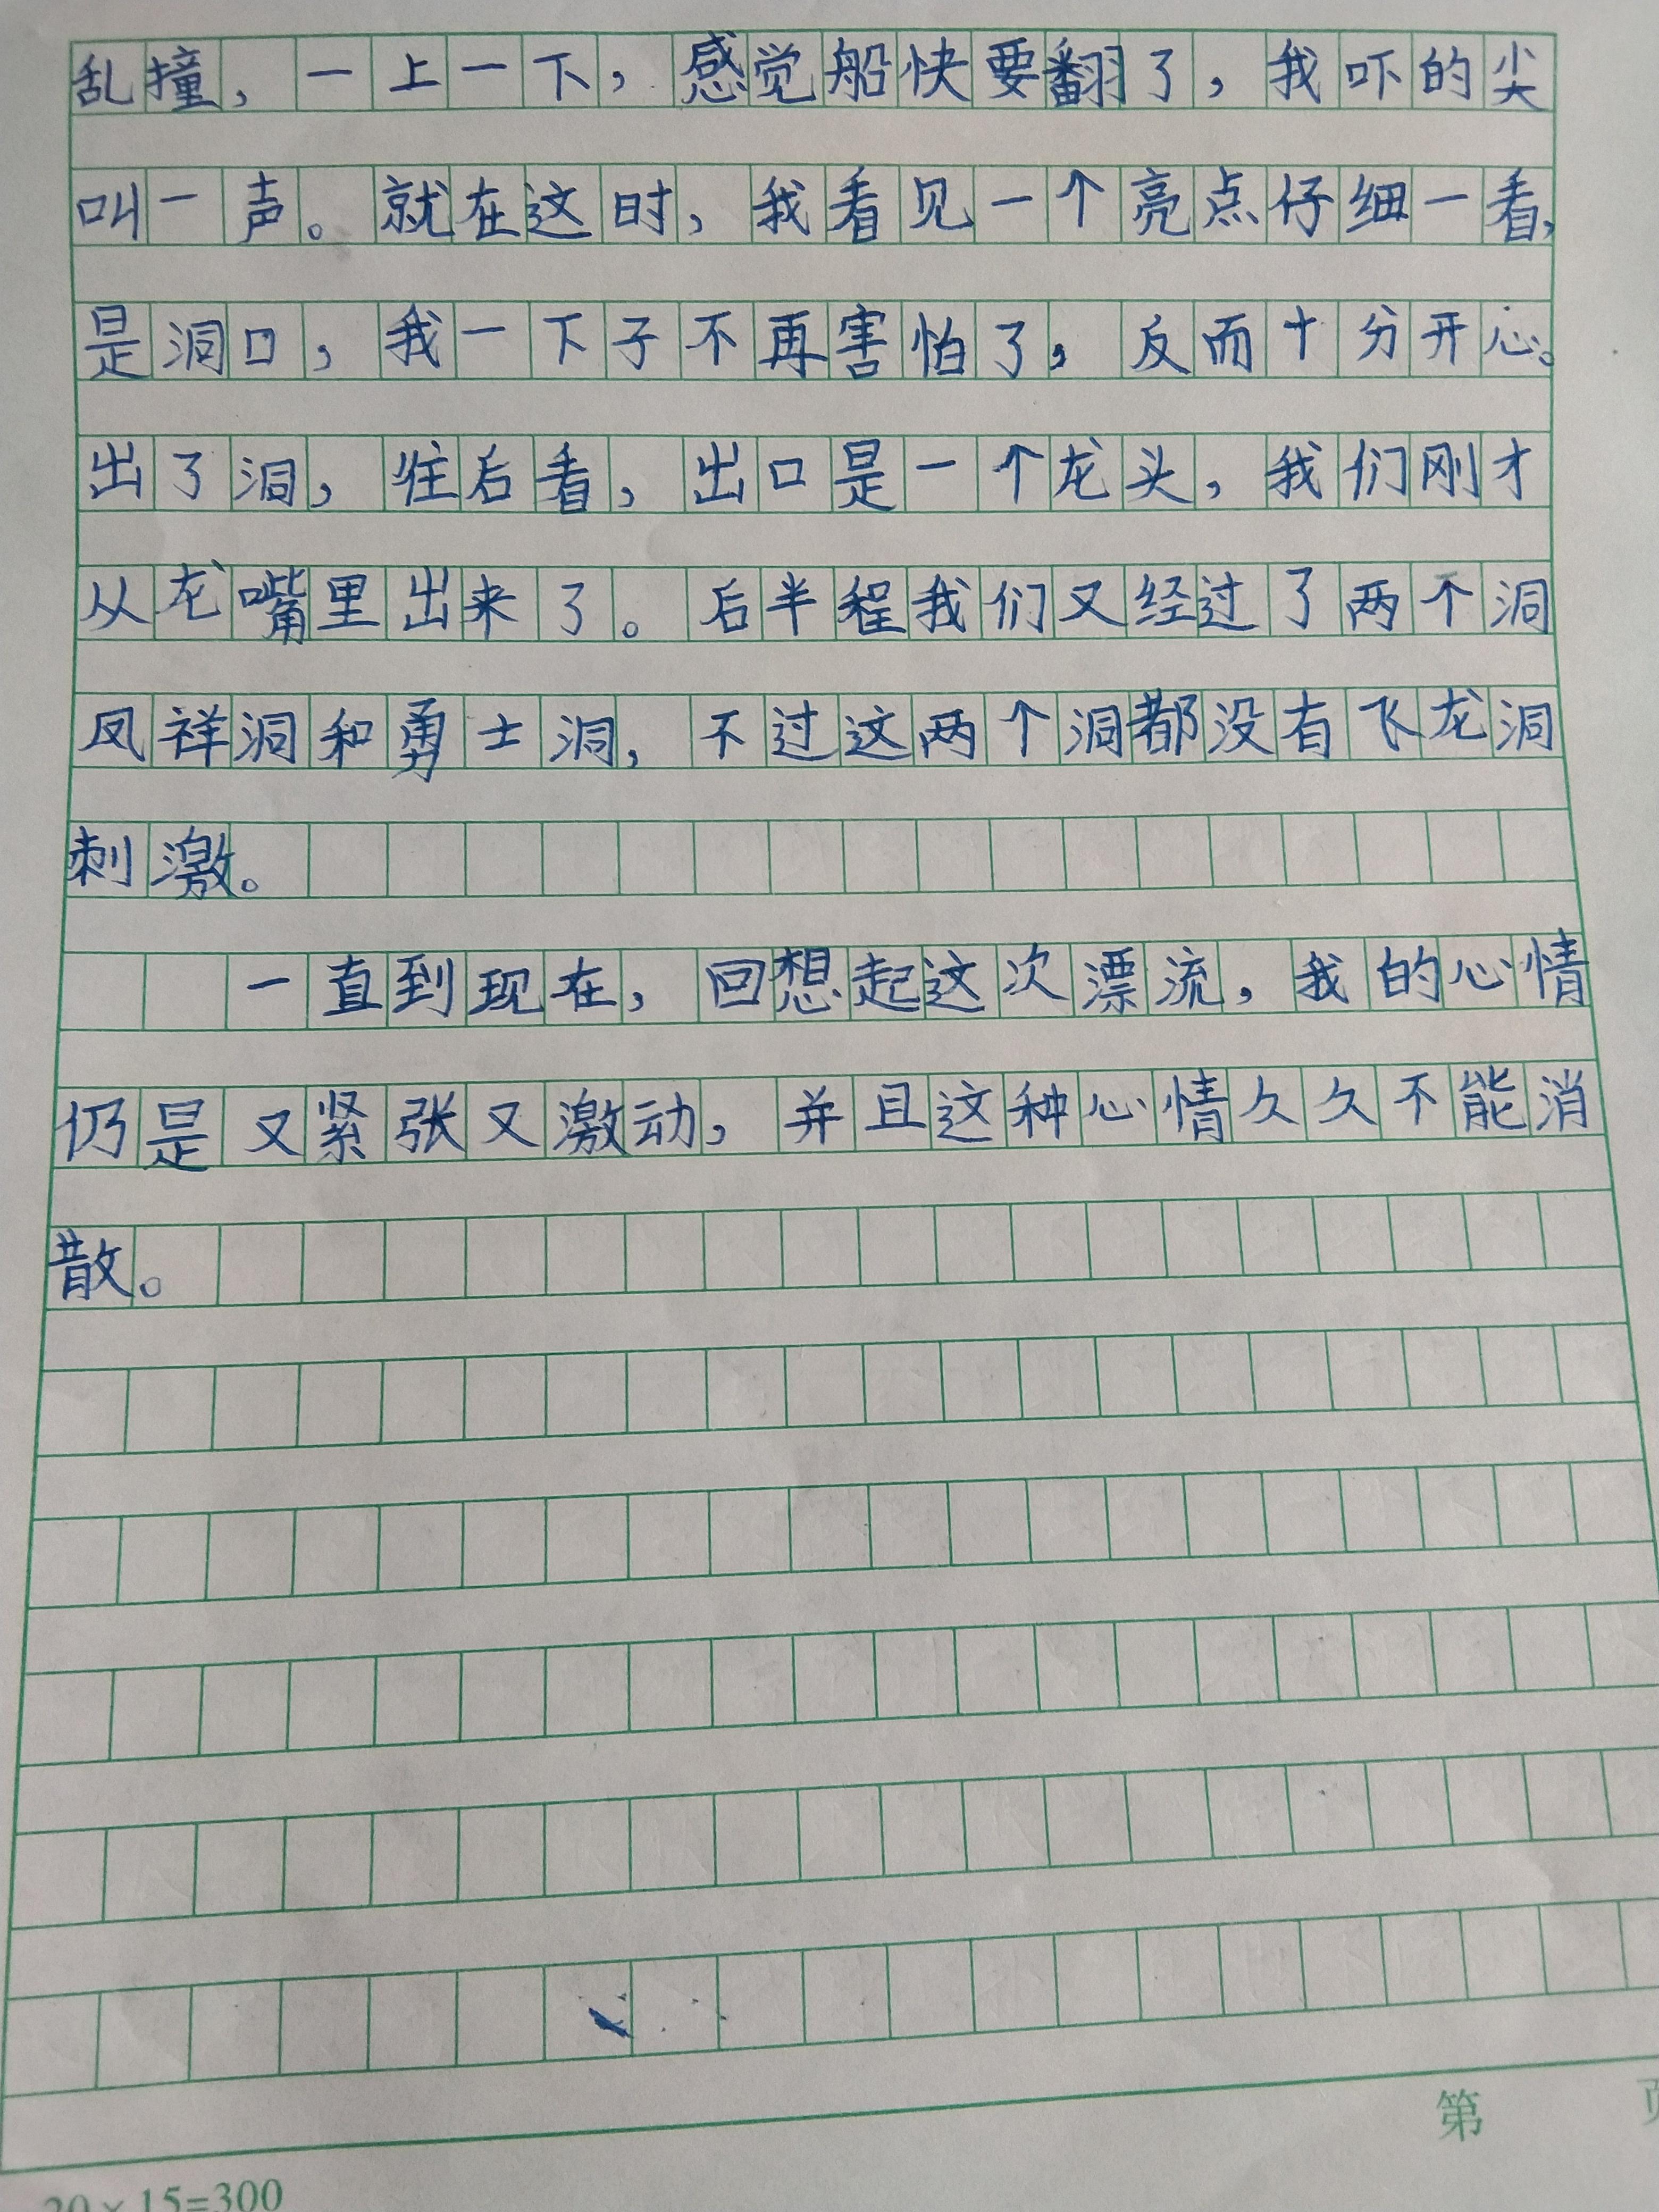 乱撞，一上一下，感觉船快要翻了，我吓的尖
叫一声。就在这时，我看见一个亮点仔细一看，
是洞口，我一下子不再害怕了，反而十分开心。
出了洞，往后看，出口是一个龙头，我们刚才
从龙嘴里出来了。后半程我们又经过了两个洞
凤祥洞和勇士洞，不过这两个洞都没有飞龙洞
刺激。
一直到现在，回想起这次漂流，我的心情
仍是又紧张又激动，并且这种心情久久不能消
散。
第 页
20×15=300